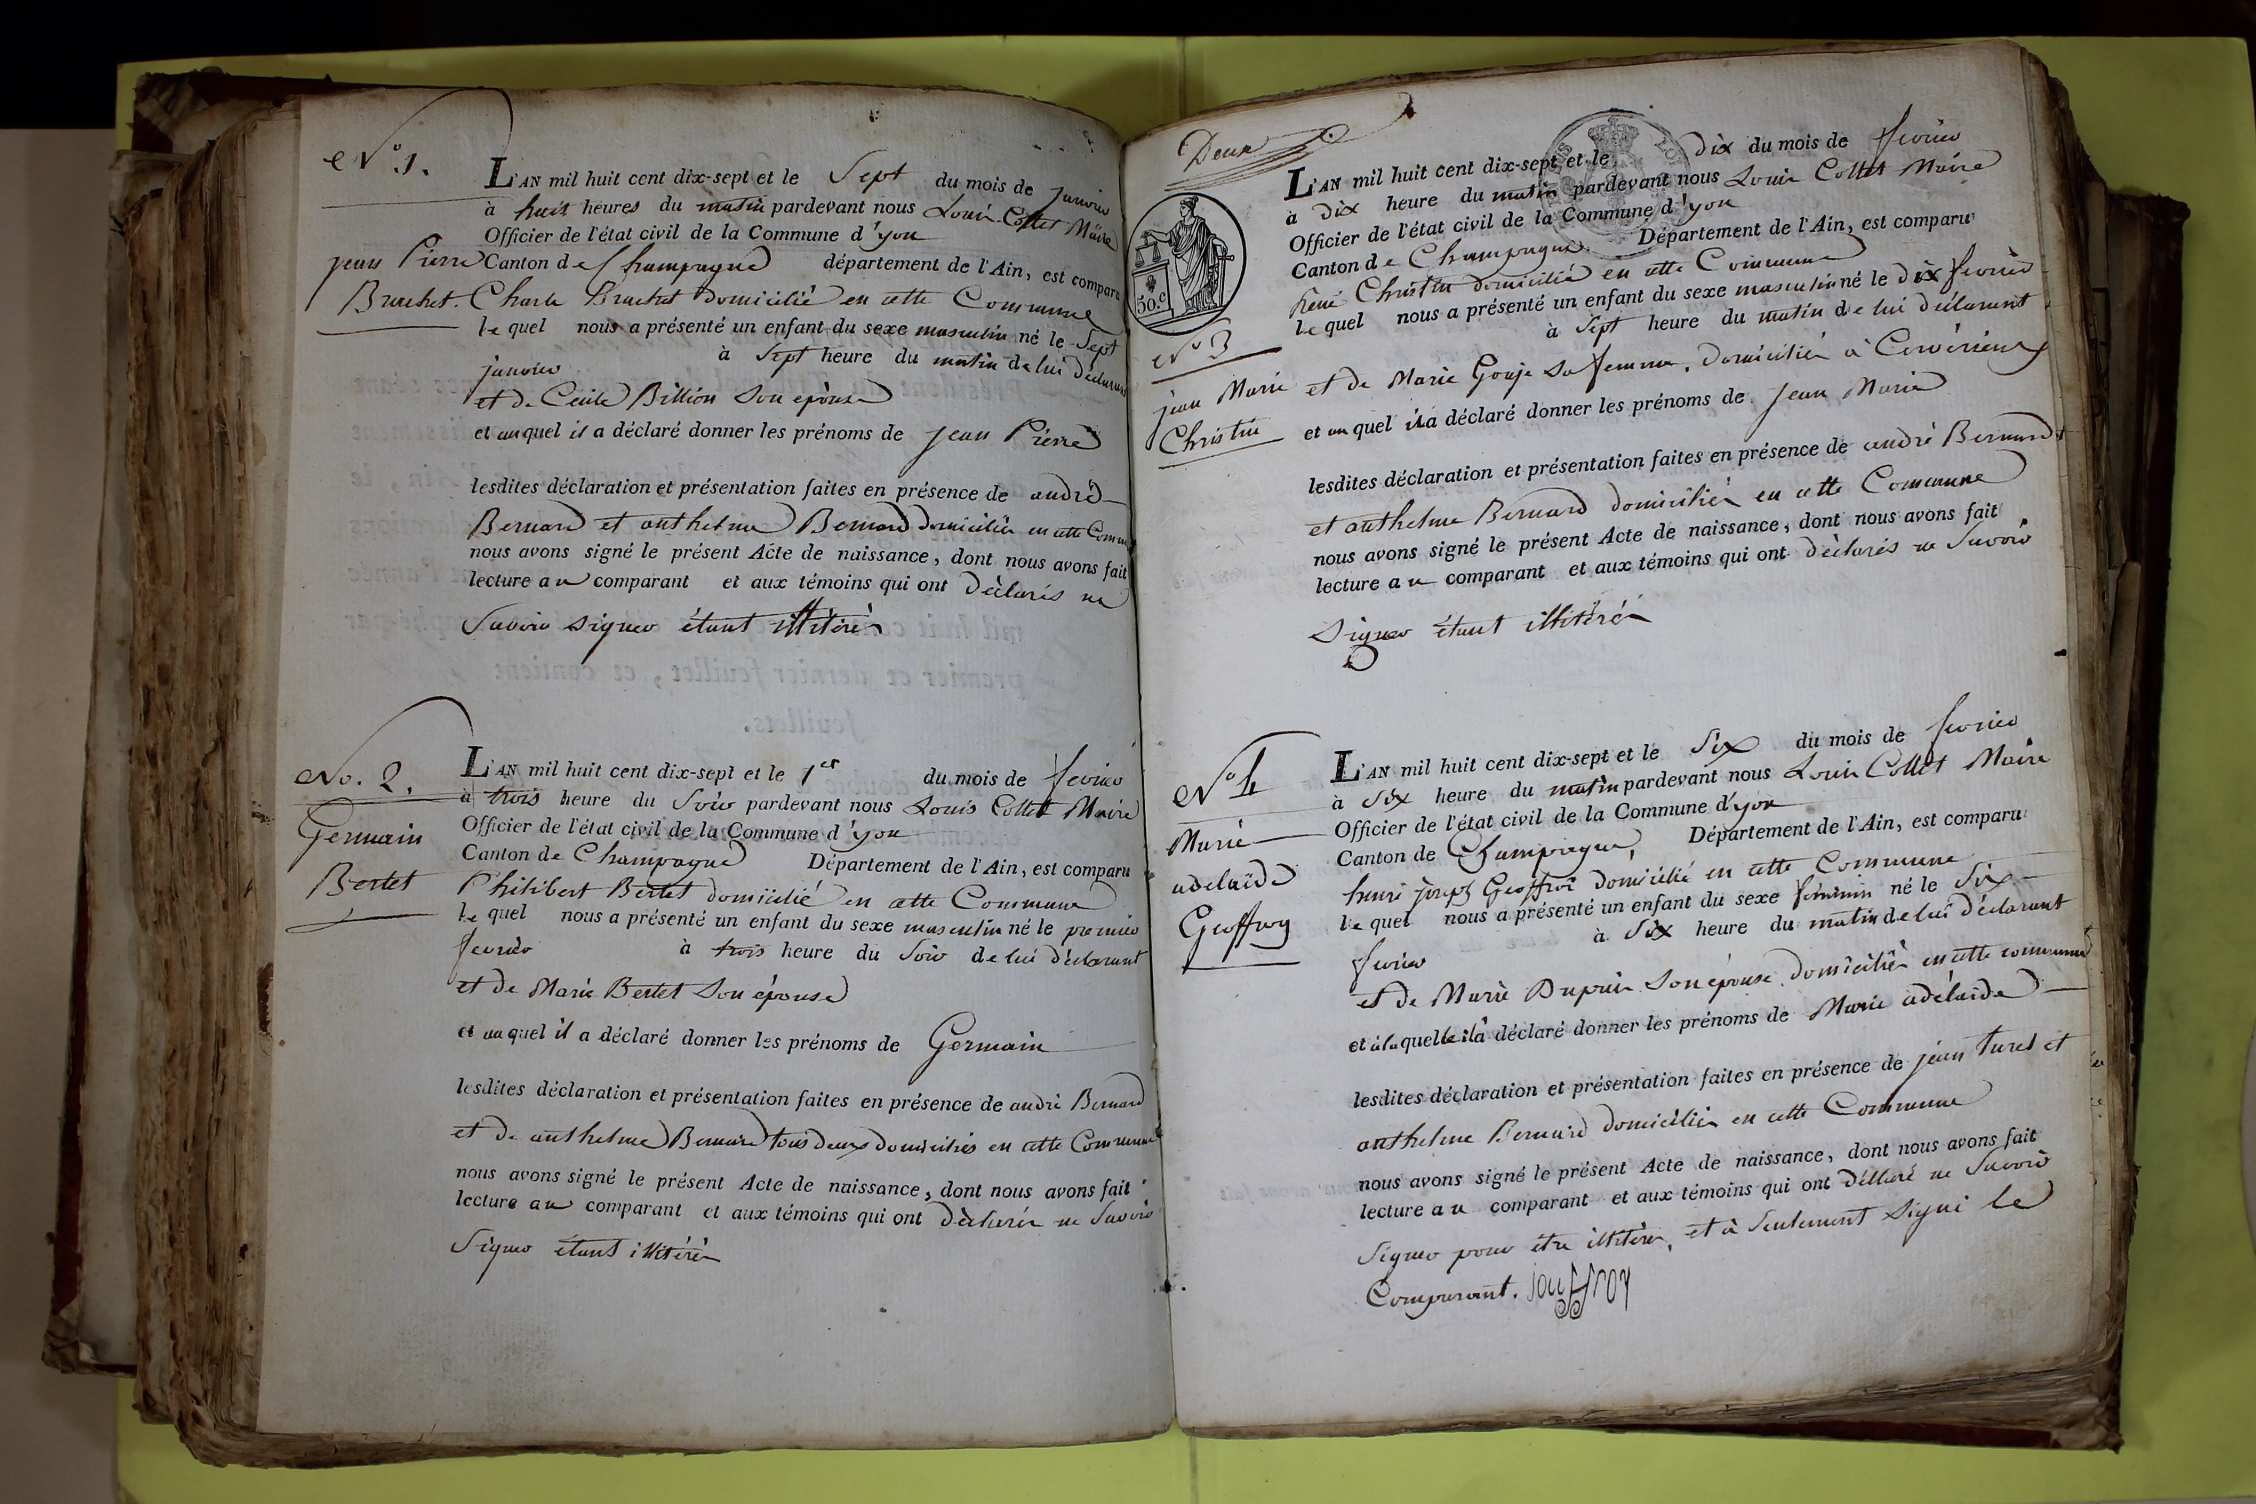 N° 1.
L'AN mil huit cent dix-sept et le Sept du mois de janvier
à huit heures du matin pardevant nous Louis Collet Maire
Officier de l'état civil de la Commune d'yon
jean Pierre Canton de Champagne département de l'Ain, est comparu
Brachet. Charle Brachet domicilié en cette Commune
lequel nous a présenté un enfant du sexe masculin né le Sept
janvier à Sept heure du matin de lui déclarant
et de Cecile Billion Son épouse
et auquel il a déclaré donner les prénoms de jean Pierre
lesdites déclaration et présentation faites en présence de andré
Bernard et anthelme Bernard domiciliés en cette Commune
nous avons signé le présent Acte de naissance, dont nous avons fait
lecture au comparant et aux témoins qui ont Déclarés ne
Savoir signer étant illitérés
No. 2.
Germain
Bertet
L'AN mil huit cent dix-sept et le 1er du mois de fevrier
à trois heure du Soir pardevant nous Louis Collet Maire
Officier de l'état civil de la Commune d'yon
Canton de Champagne Département de l'Ain, est comparu
Philibert Bertet domicilié en cette Commune
lequel nous a présenté un enfant du sexe masculin né le premier
fevrier à trois heure du Soir de lui déclarant
et de Marie Bertet Son épouse
et auquel il a déclaré donner les prénoms de Germain
lesdites déclaration et présentation faites en présence de andré Bernard
et de anthelme Bernard tous deux domiciliés en cette Commune
nous avons signé le présent Acte de naissance, dont nous avons fait
lecture au comparant et aux témoins qui ont Déclarés ne Savoir
Signer étant illitérés
Deux
50.c
N° 3
jean Marie
Christin
L'AN mil huit cent dix-sept et le dix du mois de fevrier
à dix heure du matin pardevant nous Louis Collet Maire
Officier de l'état civil de la Commune d'yon
Canton de Champagne. Département de l'Ain, est comparu
René Christin domicilié en cette Commune
lequel nous a présenté un enfant du sexe masculin né le dix fevrier
à Sept heure du matin de lui déclarant
et de Marie Gouje Sa femme. domiciliés à Cerverieux
et auquel il a déclaré donner les prénoms de jean Marie
lesdites déclaration et présentation faites en présence de andré Bernard
et anthelme Bernard domiciliés en cette Commune
nous avons signé le présent Acte de naissance, dont nous avons fait
lecture au comparant et aux témoins qui ont déclarés ne Savoir
Signer étant illitérés
N° 4
Marie
adelaïde
Geoffroy
L'AN mil huit cent dix-sept et le Six du mois de fevrier
à Six heure du matin pardevant nous Louis Collet Maire
Officier de l'état civil de la Commune d'yon
Canton de Champagne, Département de l'Ain, est comparu
henri joseph Geoffroi domicilié en cette Commune
lequel nous a présenté un enfant du sexe féminin né le Six
fevrier à Six heure du matin de lui déclarant
et de Marie Dupuis Son épouse domiciliés en cette commune
et à laquelle il a déclaré donner les prénoms de Marie adélaïde
lesdites déclaration et présentation faites en présence de jean Turel et
anthelme Bernard domiciliés en cette Commune
nous avons signé le présent Acte de naissance, dont nous avons fait
lecture au comparant et aux témoins qui ont déclaré ne Savoir
Signer pour être illitérés, et à Seulement Signé le
Comparant. jouffroy